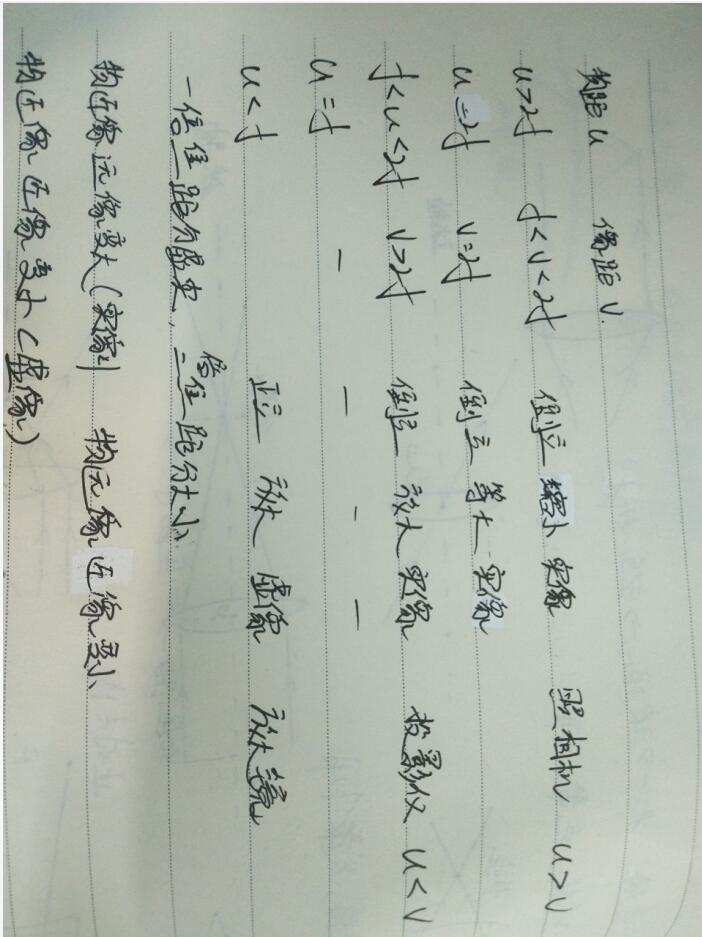 物距u 像距v.
u>2f f<v<2f 倒立 缩小 实像 照相机 u>v
u=2f v=2f 倒立 等大 实像
f<u<2f v>2f 倒立 放大 实像 投影仪 u<v
u=f — — — —
u<f 正立 放大 虚像 放大镜
一倍焦距分虚实、二倍焦距分大小、
物近像远像变大(实像) 物远像近像变小、
物近像近像变小(虚像)